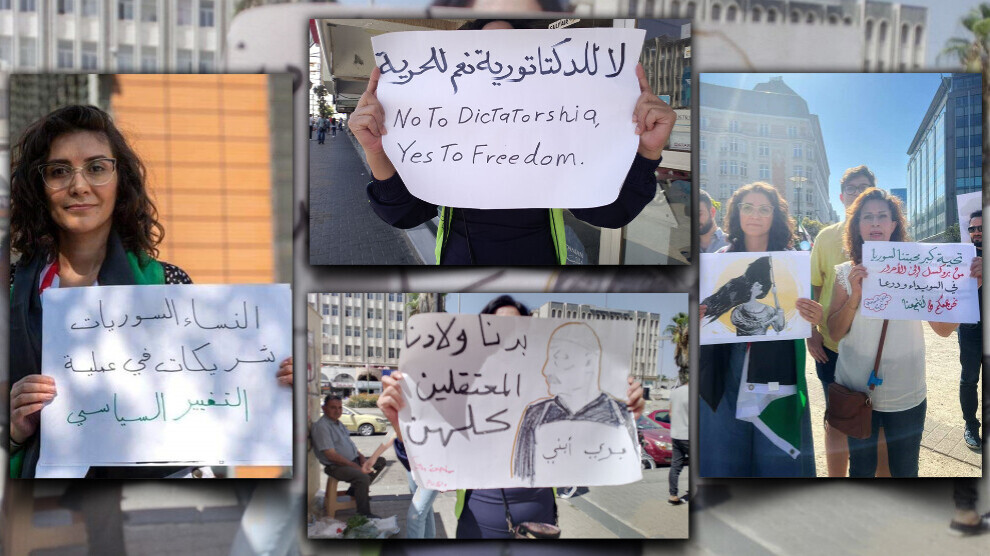 لا للدكتاتورية نعم للحرية
No To DicTaTorship,
Yes To Freedom.
النساء السوريات
شريكات في عملية
التغيير السياسي
بدنا ولادنا
المعتقلين
كلهن
بدي أبني
تحية كبر محبتنا لسوريا
من بروكسل الى الأحرار
في السويداء ودرعا